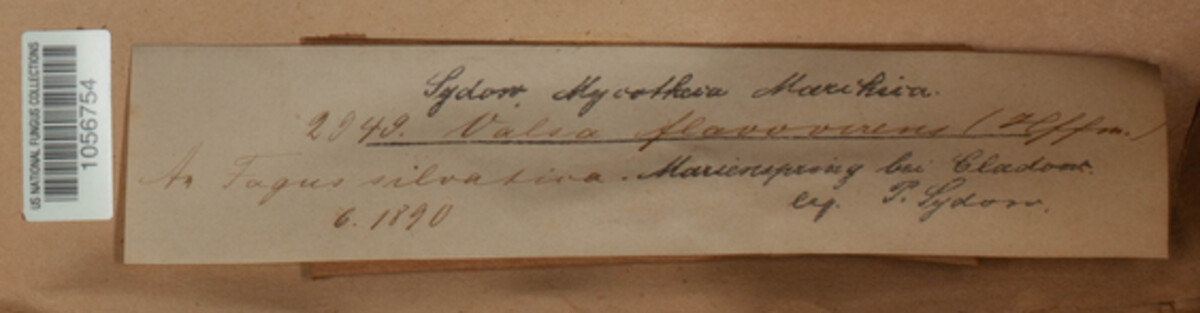 US NATIONAL FUNGUS COLLECTIONS
1056754
Sydow, Mycotheca Marchica.
2949. Valsa flavovirens (Hffm.)
An Fagus silvatica. Marienspring bei Cladow.
6. 1890 leg. P. Sydow.